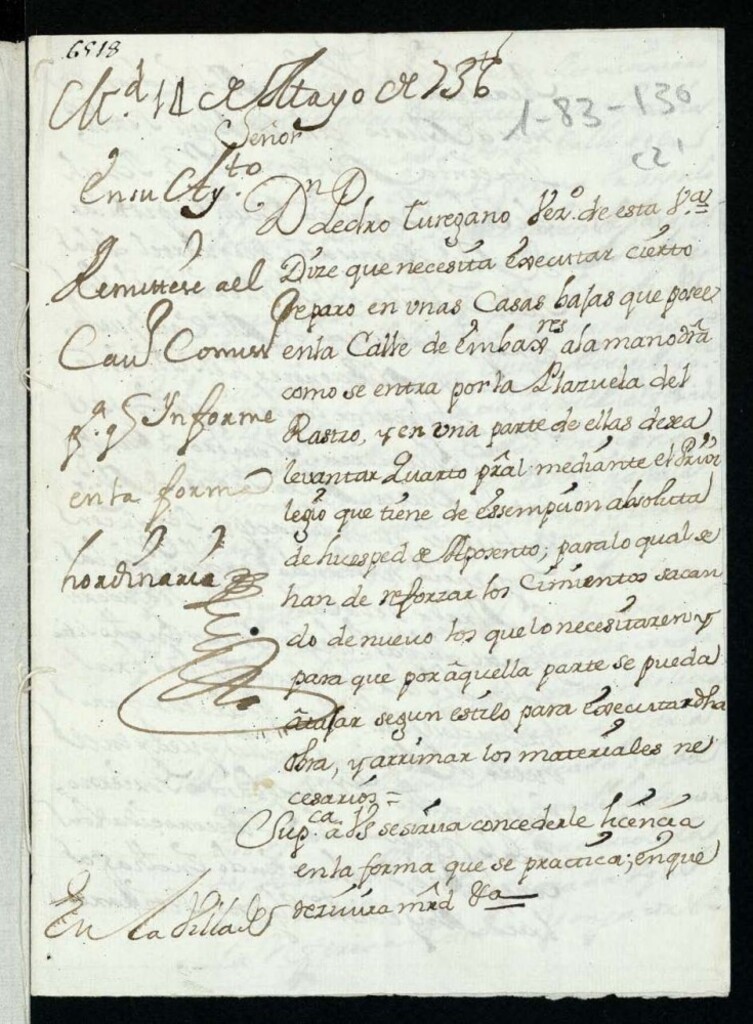 6518
M.d 14 de Mayo de 736
1-83-130
Señor
En su Ay.to
Remittese a el
Cau.o Comiss.o
p.a q.e Informe
en la forma
hordinaria
Dn Pedro Turegano Vez.o de esta V.a
Dize que necesita executar cierto
reparo en unas Casas bajas que posee
en la Calle de Embax.res a la mano dra
como se entra por la Plazuela del
Rastro, y en una parte de ellas desea
levantar Quarto pral mediante el Privi
legio que tiene de essempcion absolutta
de huesped de Aposento; para lo qual se
han de reforzar los Cimientos sacan
do de nuevo los que lo necesitaren y
para que por aquella parte se pueda
atajar segun estilo para executar dha
obra, y arrimar los materiales ne
cesarios =
Sup.ca a VS se sirva concederle licencia
en la forma que se practica; en que
rezivira mrd &a
En la Villa de